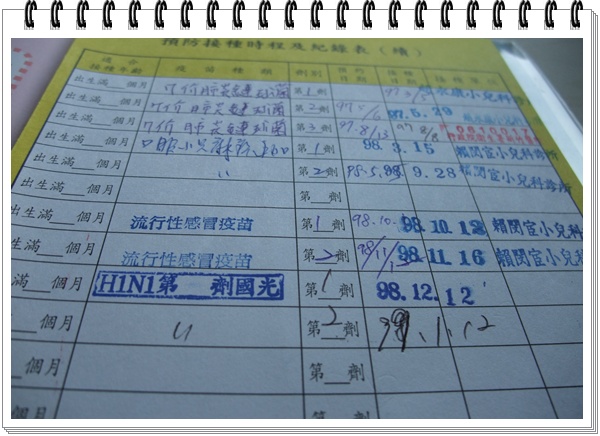 預防接種時程及紀錄表（續）
適合接種年齡 疫苗種類 劑別 預約日期 接種日期 接種單位
出生滿__個月 7价肺炎鏈球菌 第1劑
出生滿__個月 7价肺炎鏈球菌 第2劑 97.5/6 97.5.29 小兒科
出生滿__個月 7价肺炎鏈球菌 第3劑 97.8/13 97 8/8
出生滿__個月 第1劑 98.3.15 賴閔宣小兒科診所
出生滿__個月 〃 第2劑 98.5. 9.28 賴閔宣小兒科診所
出生滿__個月 第__劑
出生滿__個月 流行性感冒疫苗 第1劑 98.10. 98.10.12 賴閔宣小兒科
出生滿__個月 流行性感冒疫苗 第2劑 98/11/ 98.11.16 賴閔宣小兒科
滿__個月 H1N1第 劑國光 第1劑 98.12.12
個月 〃 第2劑 99.1.12
個月 第__劑
個月 第__劑